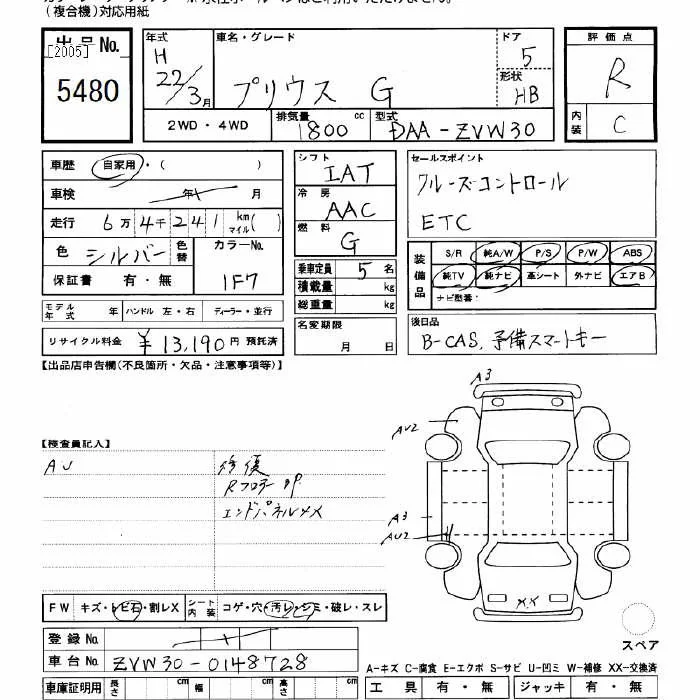 (複合機)対応用紙
出品No.
[2005]
5480
年式
H
22/3月
車名・グレード
プリウス G
ドア
5
形状
HB
評価点
R
内装
C
2WD・4WD
排気量
1800 cc
型式
DAA-ZVW30
車歴 自家用・( )
車検 年 月
走行 6万4千241 km マイル( )
色 シルバー 色替 カラーNo.
1F7
保証書 有・無
モデル年式 年 ハンドル 左・右 ディーラー・並行
リサイクル料金 ¥13,190円 預託済
シフト
IAT
冷房
AAC
燃料
G
乗車定員 5 名
積載量 kg
総重量 kg
名変期限
月 日
セールスポイント
クルーズコントロール
ETC
装備品
S/R 純A/W P/S P/W ABS
純TV 純ナビ 革シート 外ナビ エアB
ナビ型番:
後日品
B-CAS、予備スマートキー
【出品店申告欄(不良箇所・欠品・注意事項等)】
【検査員記入】
AU
修復
Rフロアー
エンドパネルXX
A3
AU2
A3
AU2
XX
FW キズ・トビ石・割レX シート内装 コゲ・穴・汚レ・シミ・破レ・スレ
登録No.
車台No. ZVW30-0148728
車庫証明用 長さ cm 幅 cm 高さ cm
スペア
A-キズ C-腐食 E-エクボ S-サビ U-凹ミ W-補修 XX-交換済
工具 有・無 ジャッキ 有・無